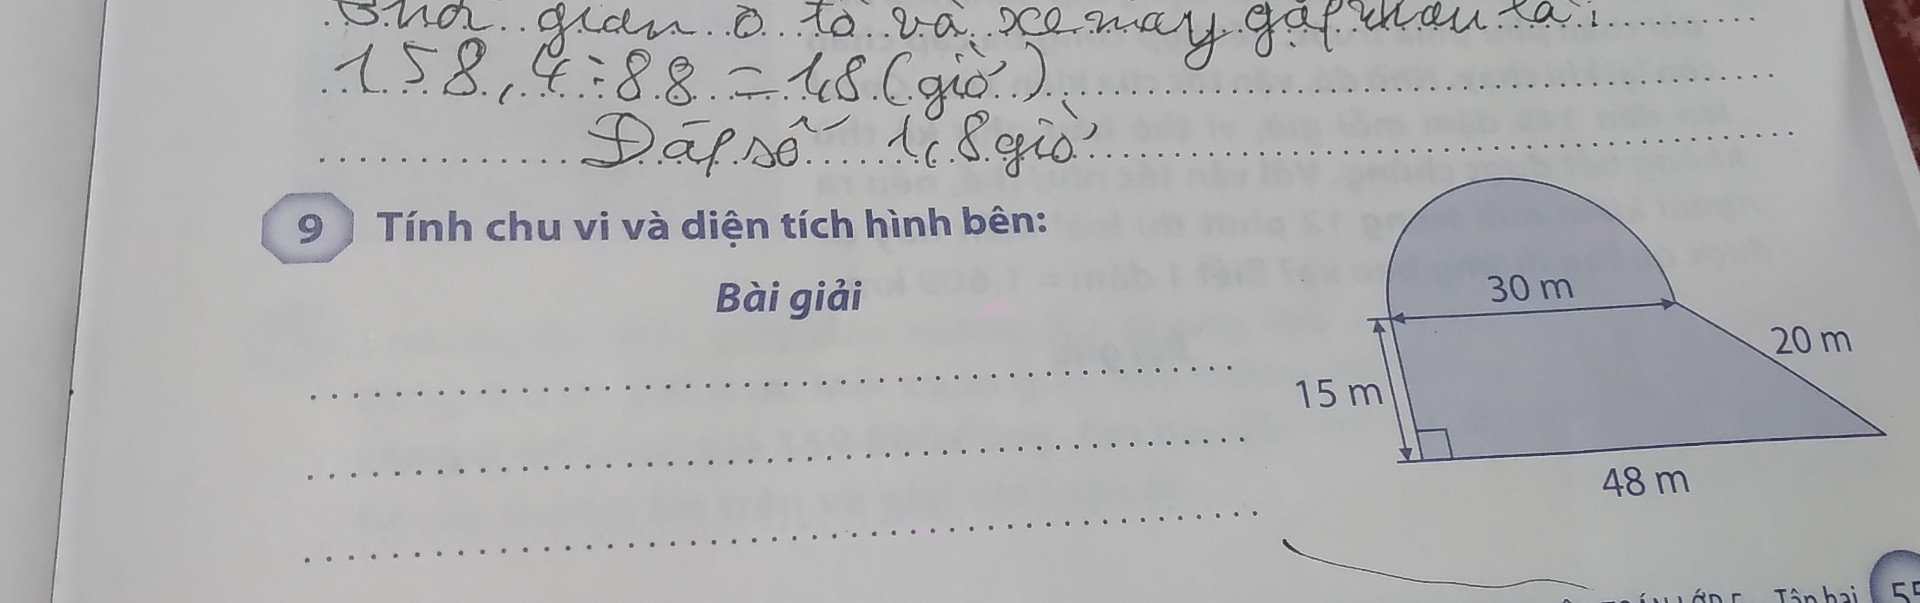 gian ô tô và xe máy gặp nhau là:
158,4 : 88 = 1,8 (giờ)
Đáp số 1,8 giờ
9 Tính chu vi và diện tích hình bên:
Bài giải
30 m
20 m
15 m
48 m
Tập hai 55